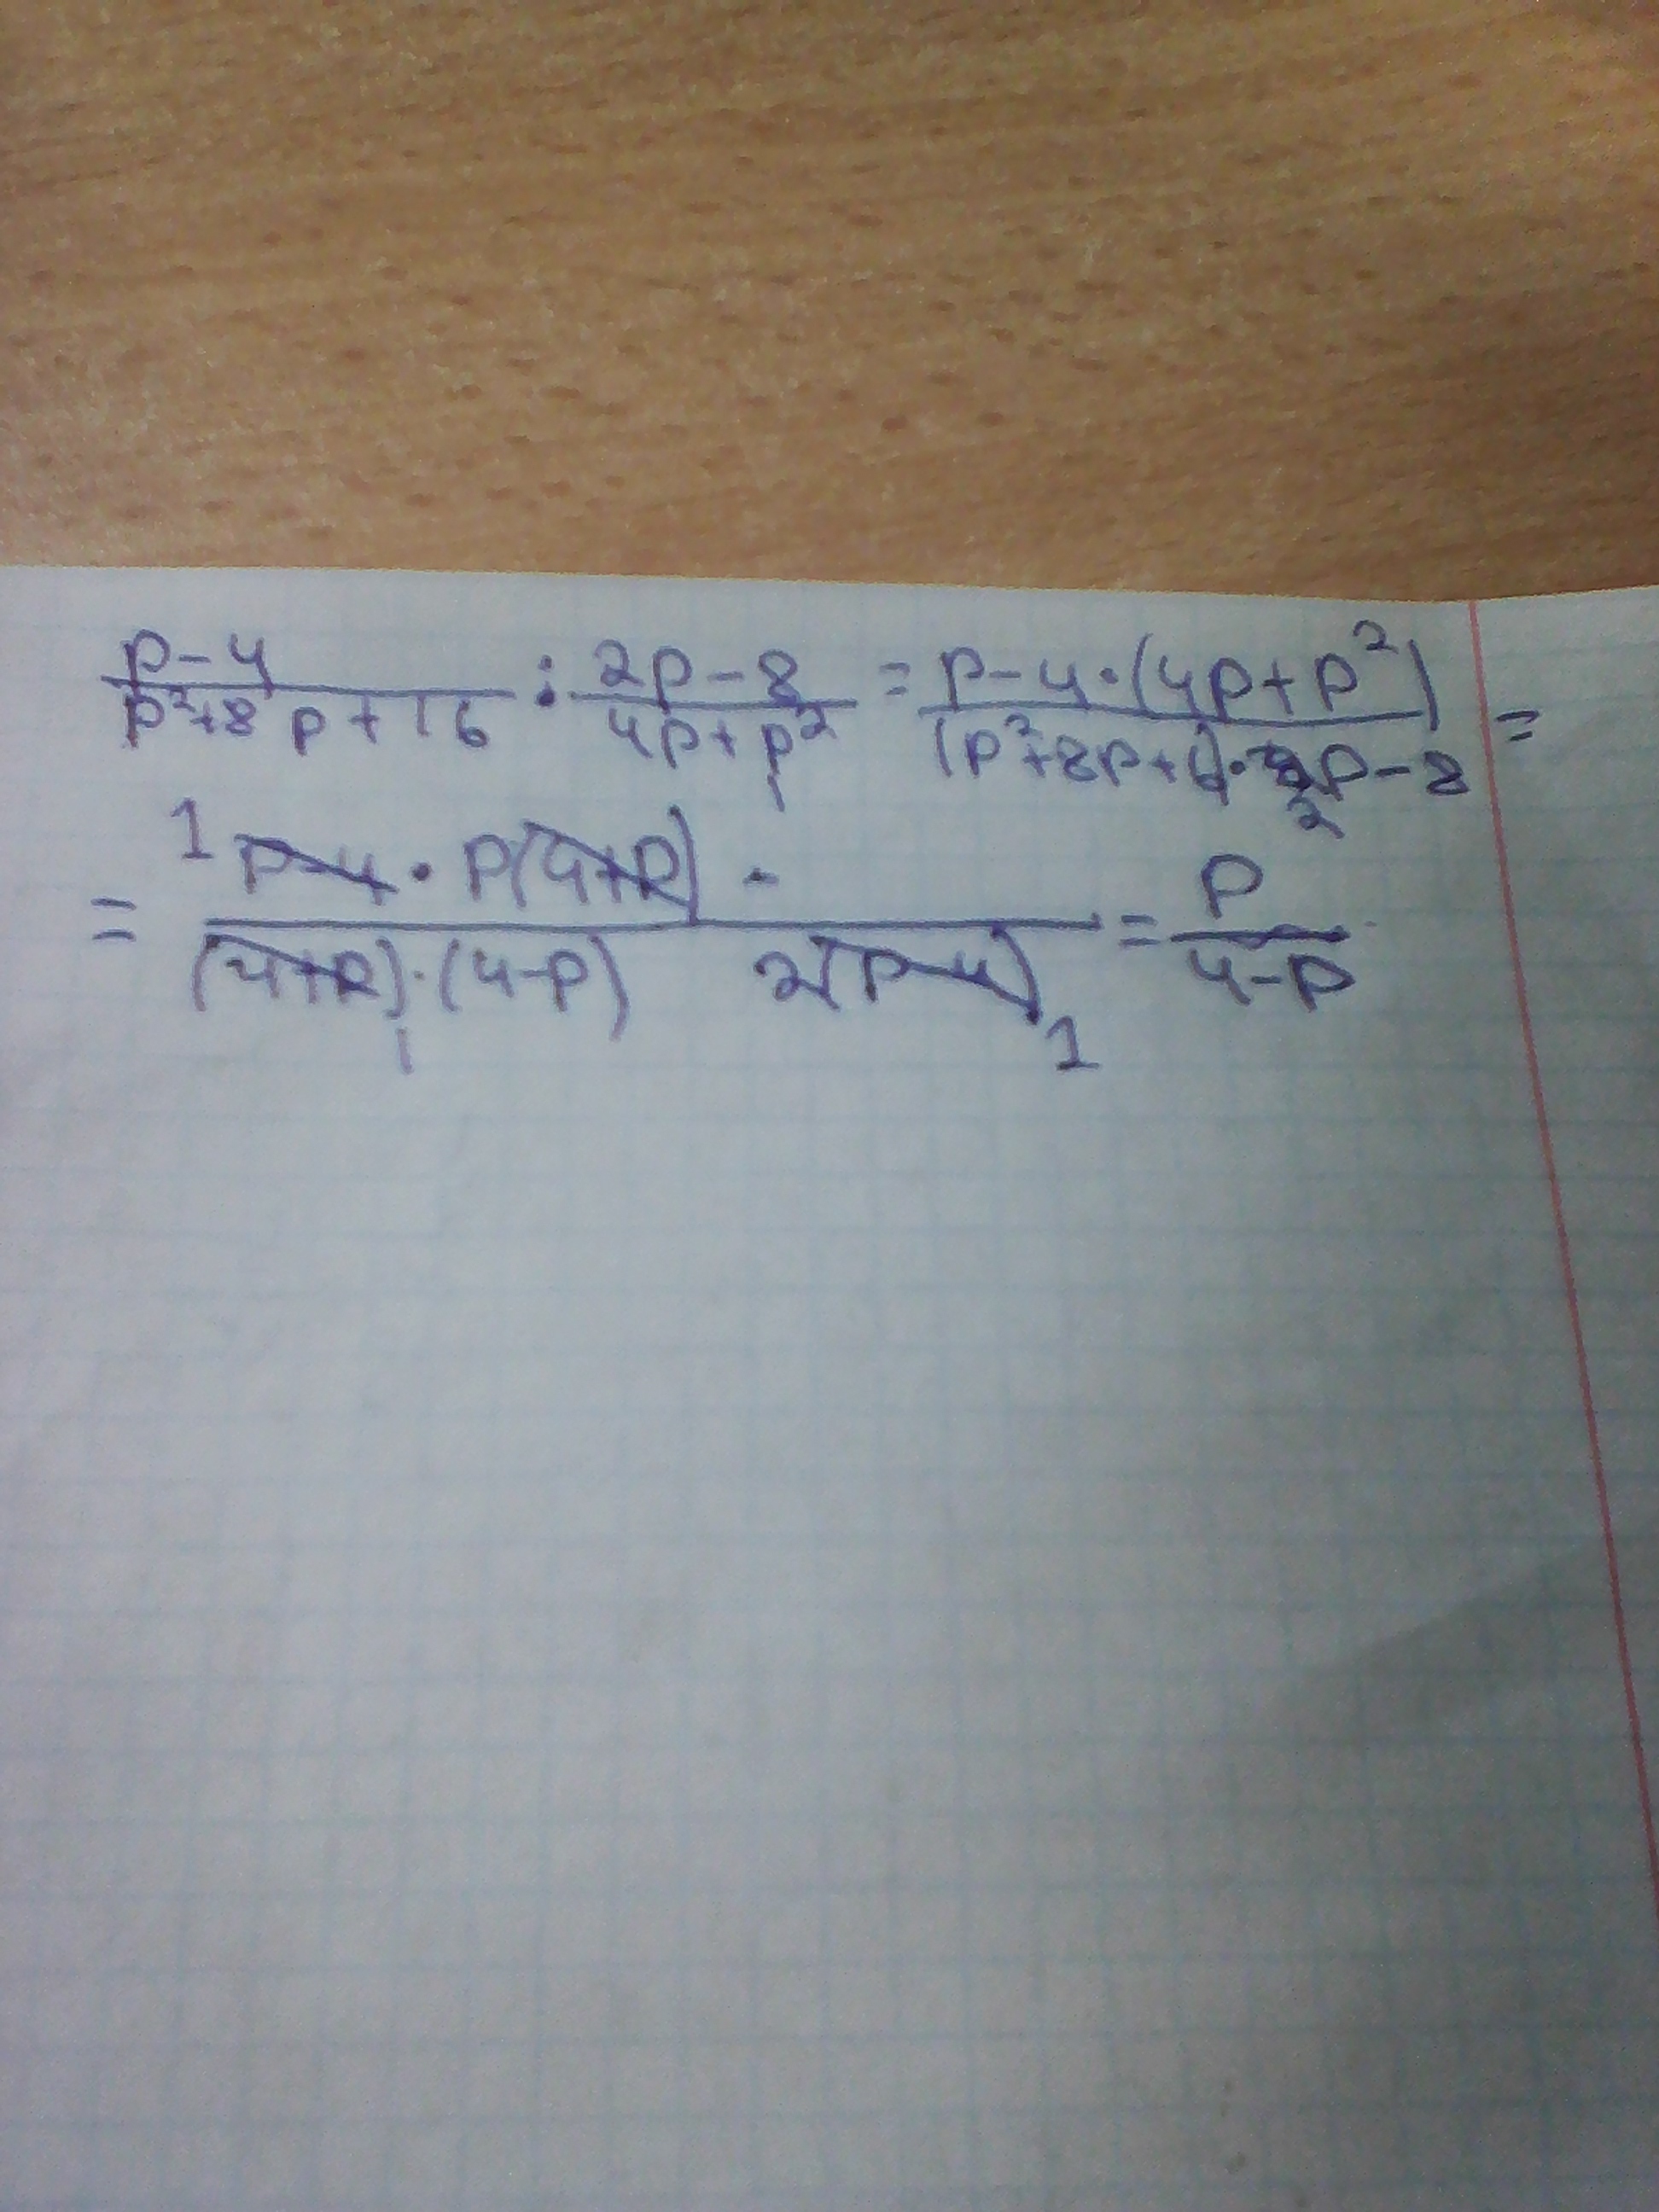 p-4/p²+8p+16 : 2p-8/4p+p² = p-4·(4p+p²)/(p²+8p+16)·2p-8 =
= 1 p-4 · p(4+p) · /(4+p)·(4-p) 2(p-4) 1 = p/4-p